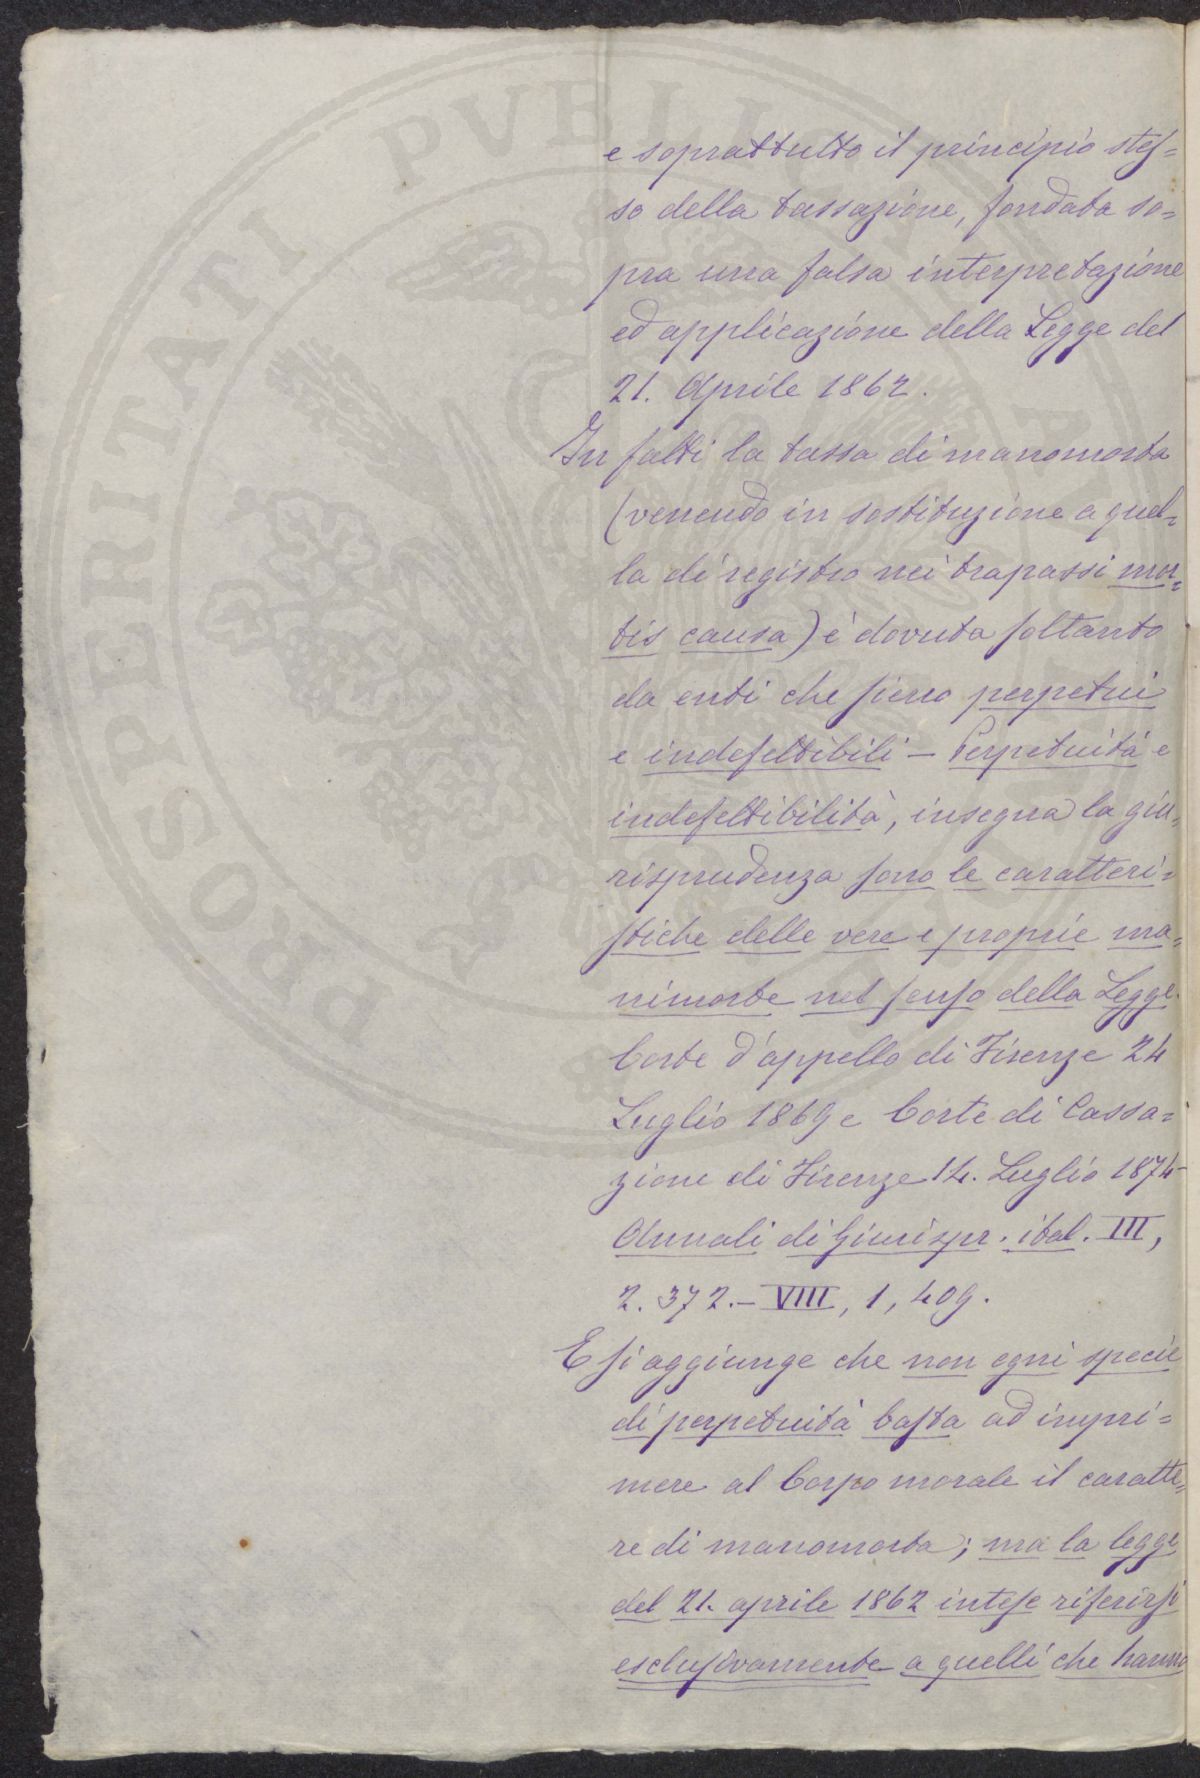 e soprattutto il principio stes=
so della tassazione, fondata so=
pra una falsa interpretazione
ed applicazione della Legge del
21. Aprile 1862.
In fatti la tassa di manomorta
(venendo in sostituzione a quel=
la di registro nei trapassi mor=
tis causa) è dovuta soltanto
da enti che sieno perpetui
e indefettibili – Perpetuità e
indefettibilità, insegna la giu=
risprudenza sono le caratteri=
stiche delle vere e proprie ma=
nimorte nel senso della Legge.
Corte d'appello di Firenze 24
Luglio 1869 e Corte di Cassa=
zione di Firenze 14. Luglio 1874–
Annali di Giurispr. ital. III,
2. 372. – VIII, 1, 409.
E si aggiunge che non ogni specie
di perpetuità basta ad impri=
mere al Corpo morale il caratte=
re di manomorta; ma la legge
del 21. aprile 1862 intese riferirsi
esclusivamente a quelli che hanno
PROSPERITATI PVBLICA